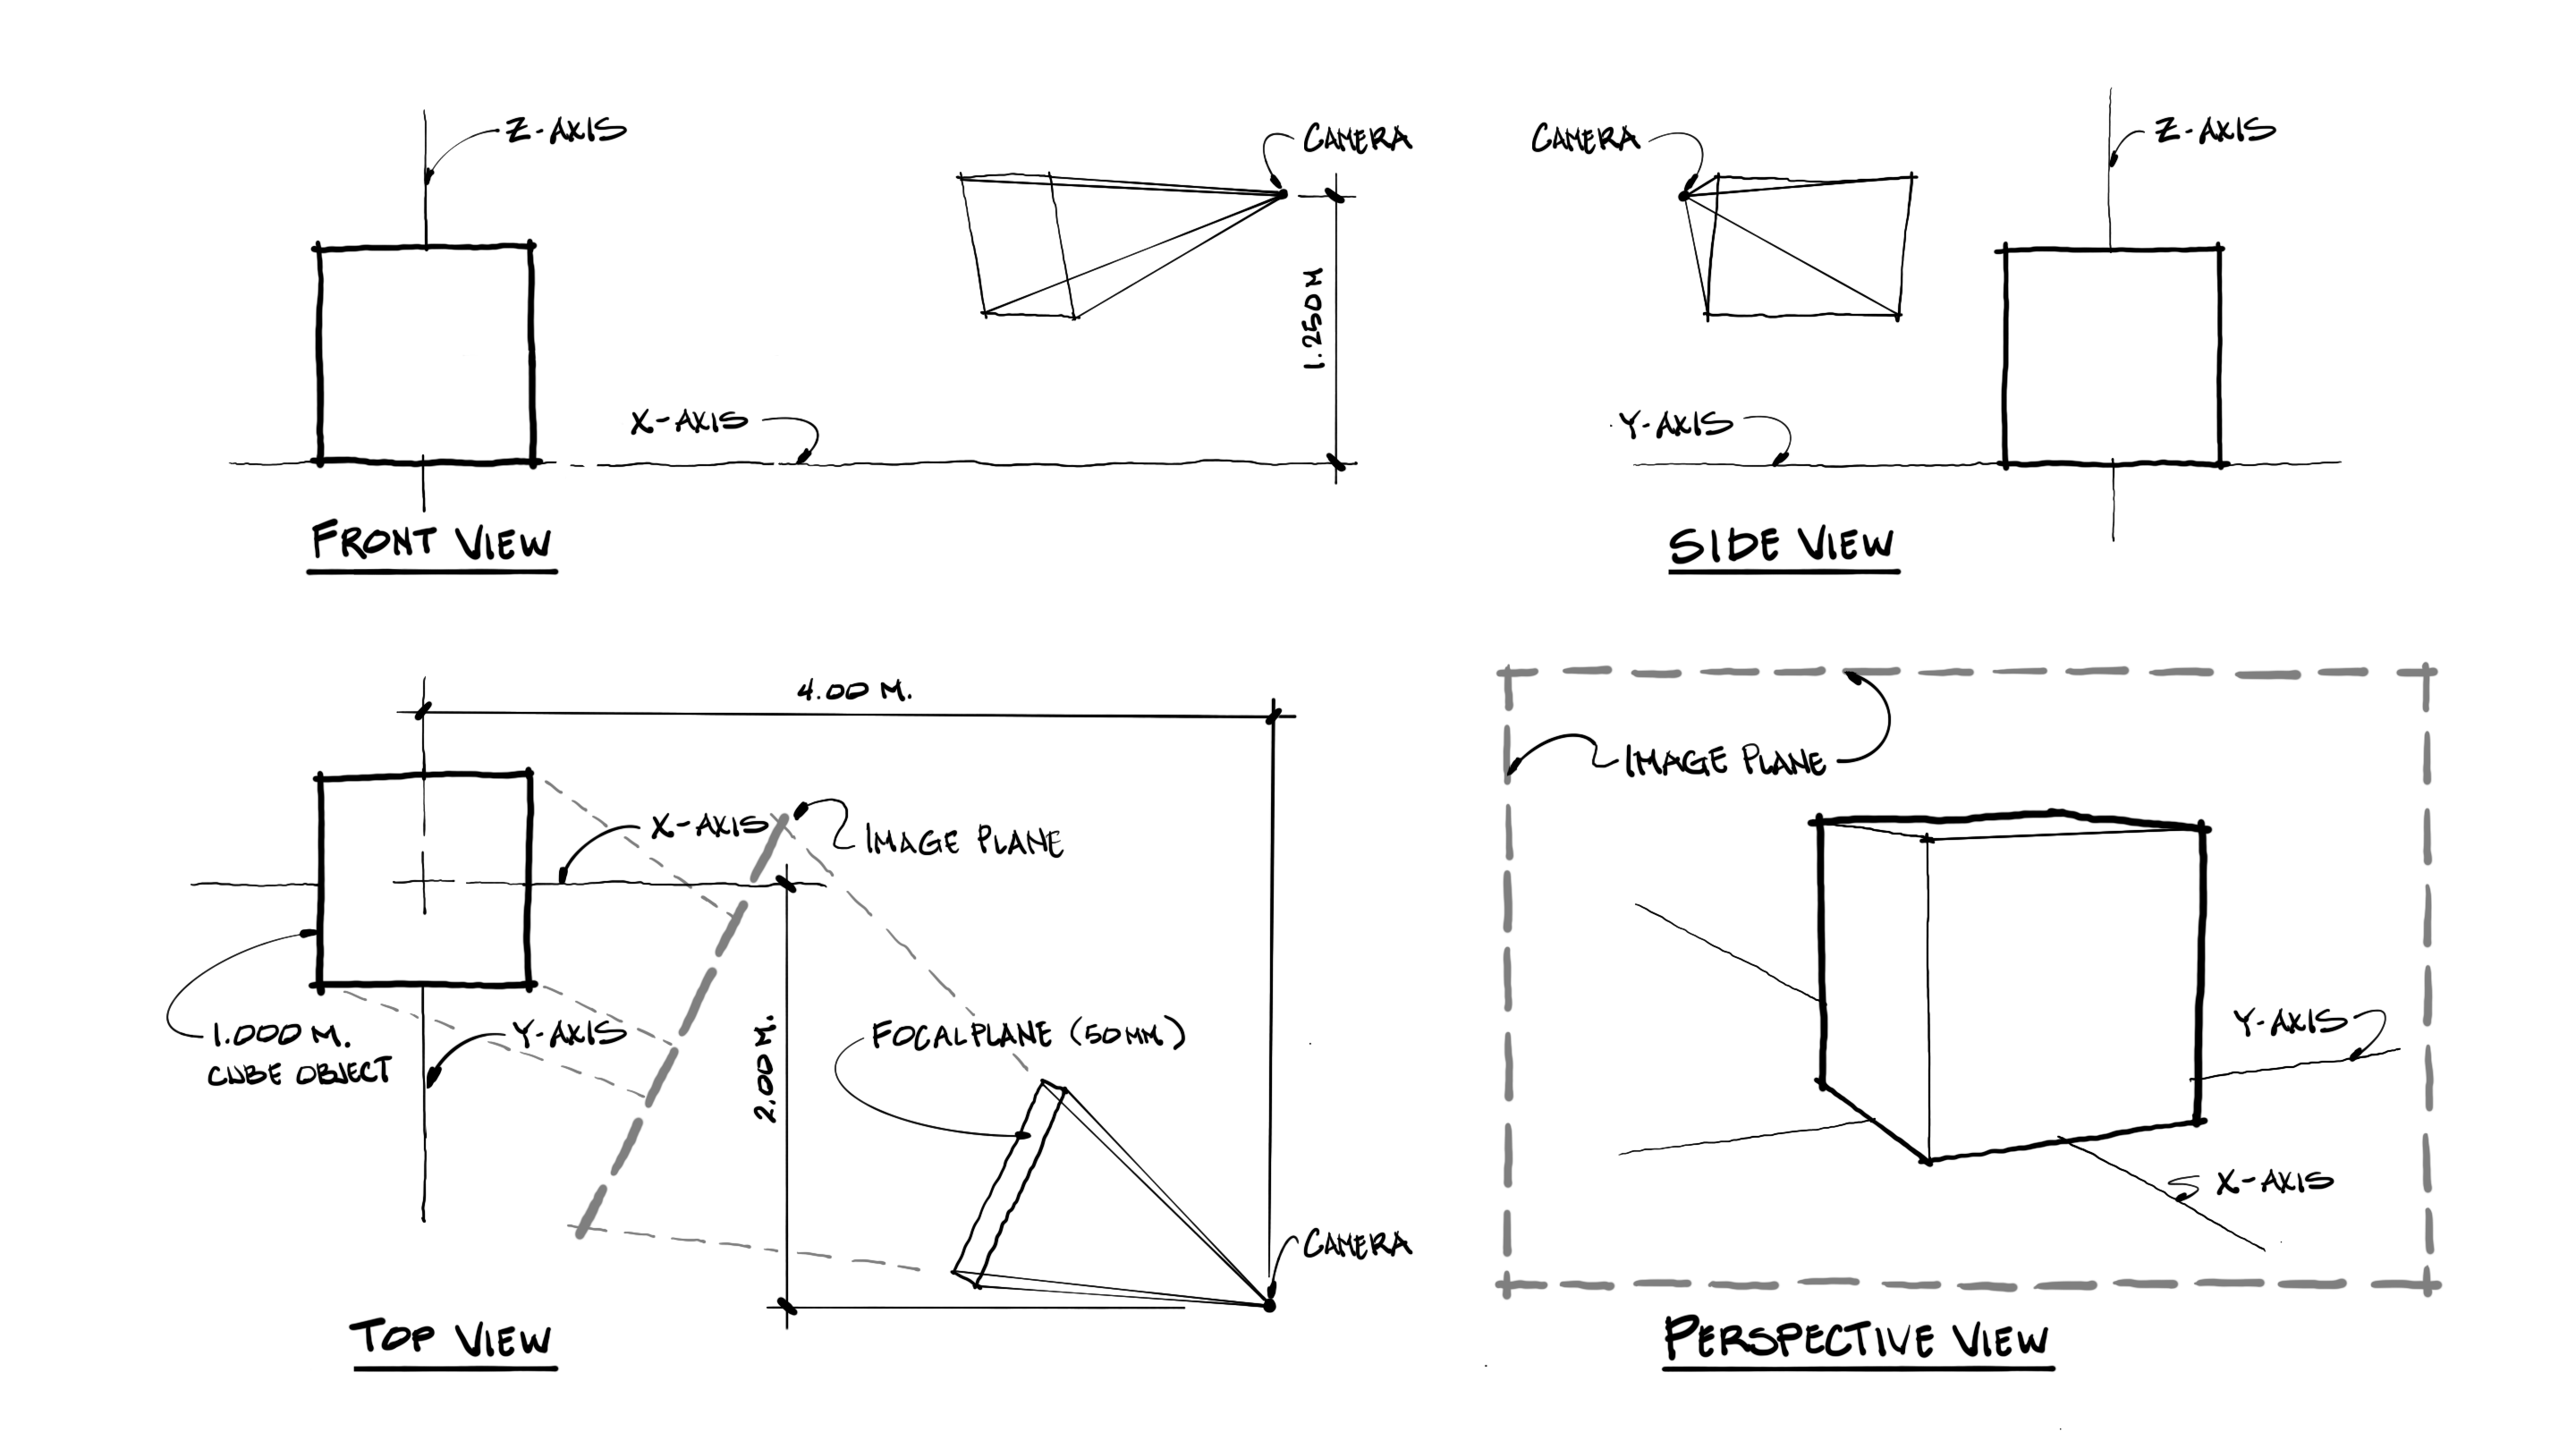 Z-AXIS
CAMERA
1.250M
X-AXIS
FRONT VIEW
CAMERA
Z-AXIS
Y-AXIS
SIDE VIEW
4.00 M.
X-AXIS
IMAGE PLANE
1.000 M.
CUBE OBJECT
Y-AXIS
2.00 M.
FOCAL PLANE (50MM.)
CAMERA
TOP VIEW
IMAGE PLANE
Y-AXIS
X-AXIS
PERSPECTIVE VIEW